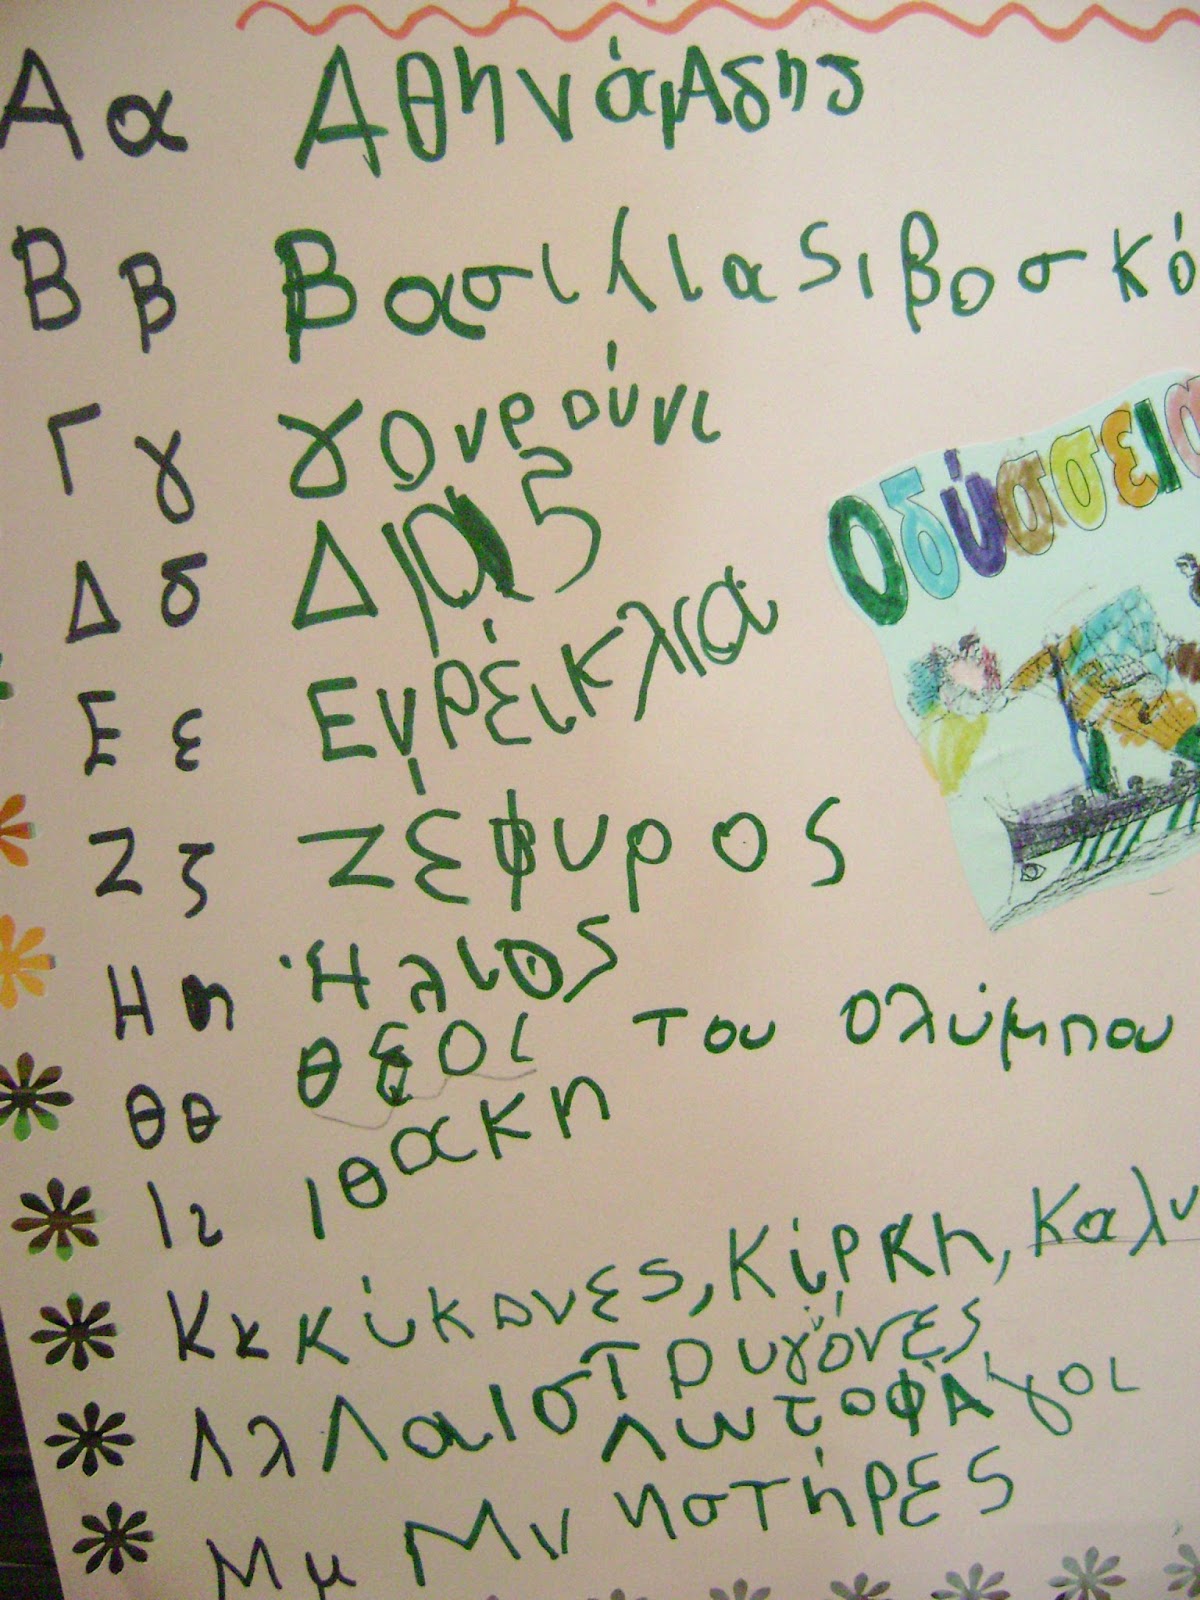 Α α Αθηνά, Αδης
Β β Βασιλιας, βοσκό
Γ γ γουρούνι
Δ δ Διας
Ε ε Ευρείκλια
Ζ ζ Ζέφυρος
Οδύσσεια
Η η Ήλιος
Θ θ Θεοι του Ολύμπου
Ι ι Ιθακη
Κ κ Κύκονες, Κίρκη, Καλυ
Λ λ Λαιστρυγόνες,
Λωτοφάγοι
Μ μ Μνηστήρες